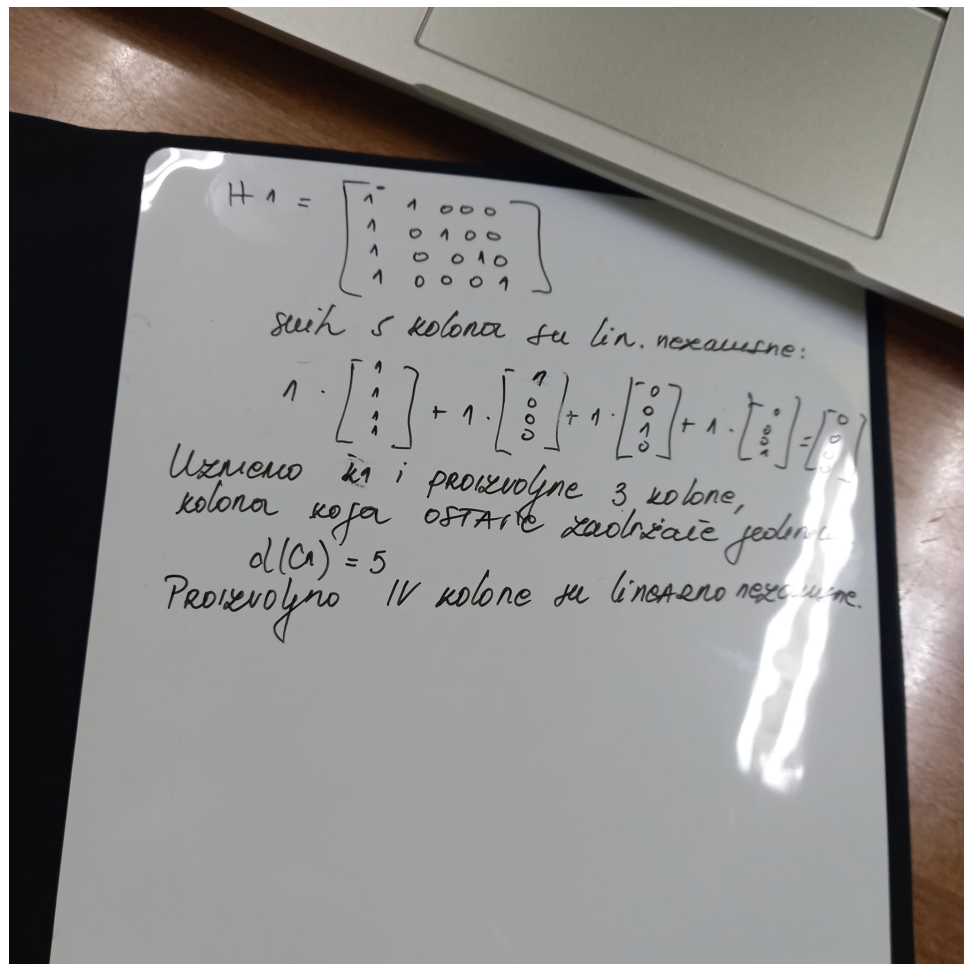 H1 = [ 1 1 0 0 0
1 0 1 0 0
1 0 0 1 0
1 0 0 0 1 ]
svih 5 kolona su lin. nezavisne:
1 · [ 1 1 1 1 ] + 1 · [ 1 0 0 0 ] + 1 · [ 0 0 1 0 ] + 1 · [ 0 0 0 1 ] = [ 0 0 0 ]
Uzmemo k1 i proizvoljne 3 kolone,
kolona koja OSTAJE zadržaće
d(C1) = 5
Proizvoljno IV kolone su linearno nezavisne.